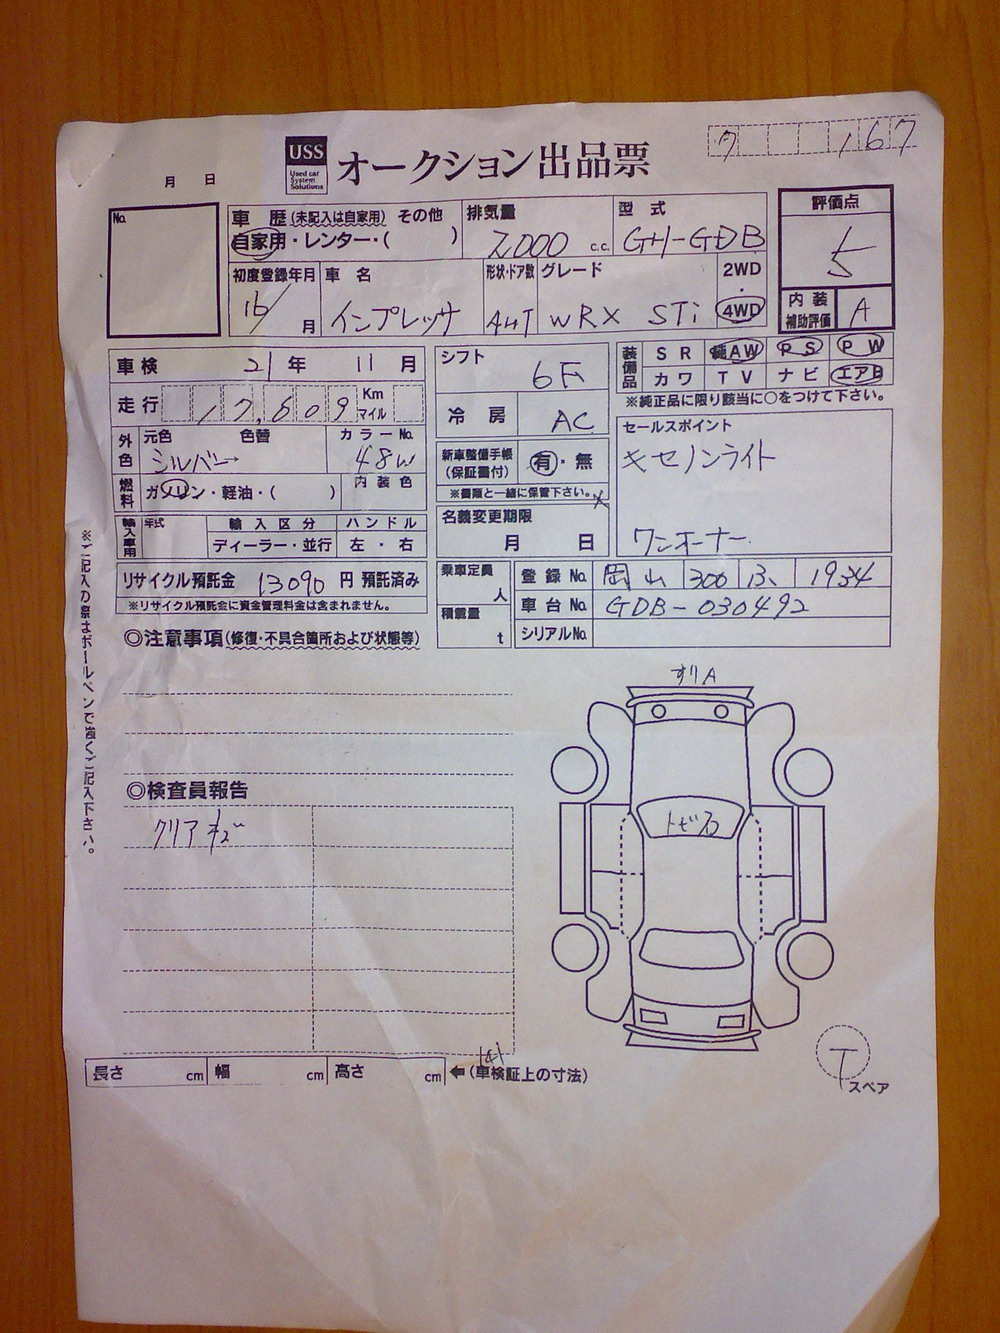 7 167
USS
Used car
System
Solutions
オークション出品票
月 日
No.
車歴(未記入は自家用) その他
自家用・レンター・( )
排気量
2,000 c.c.
型式
GH-GDB
評価点
5
内装
補助評価
A
初度登録年月
16/ 月
車名
インプレッサ
形状・ドア数
4HT
グレード
WRX STi
2WD
・
4WD
車検 21年 11月
走行 17,609 Km
マイル
外色
元色 色替
シルバー
カラーNo.
48W
燃料
ガソリン・軽油・( )
内装色
輸入車用
年式
輸入区分
ディーラー・並行
ハンドル
左・右
リサイクル預託金 13090 円 預託済み
※リサイクル預託金に資金管理料金は含まれません。
シフト
6F
冷房 AC
新車整備手帳
(保証書付)
有・無
※書類と一緒に保管下さい。
名義変更期限
月 日
乗車定員
人
積載量
t
装備品
SR 純AW PS PW
カワ TV ナビ エアB
※純正品に限り該当に○をつけて下さい。
セールスポイント
キセノンライト
ワンオーナー
登録No. 岡山 300 1934
車台No. GDB-030492
シリアルNo.
◎注意事項(修復・不具合箇所および状態等)
※ご記入の際はボールペンで強くご記入下さい。
◎検査員報告
クリアキズ
すりA
トビ石
T
スペア
長さ cm 幅 cm 高さ cm ←(車検証上の寸法)